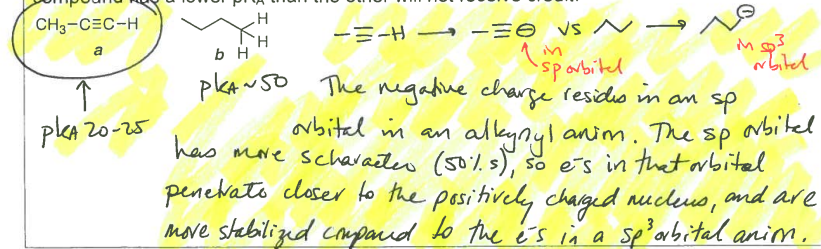 compound has a lower pKA than the other will not receive credit.
CH₃−C≡C−H
a
H
H
H
b
−≡−H → −≡⊖ vs → ⊖
in sp orbital
in sp³ orbital
pKA 20-25
pKA ~50
The negative charge resides in an sp
orbital in an alkynyl anion. The sp orbital
has more s character (50% s), so e⁻s in that orbital
penetrate closer to the positively charged nucleus, and are
more stabilized compared to the e⁻s in a sp³ orbital anion.